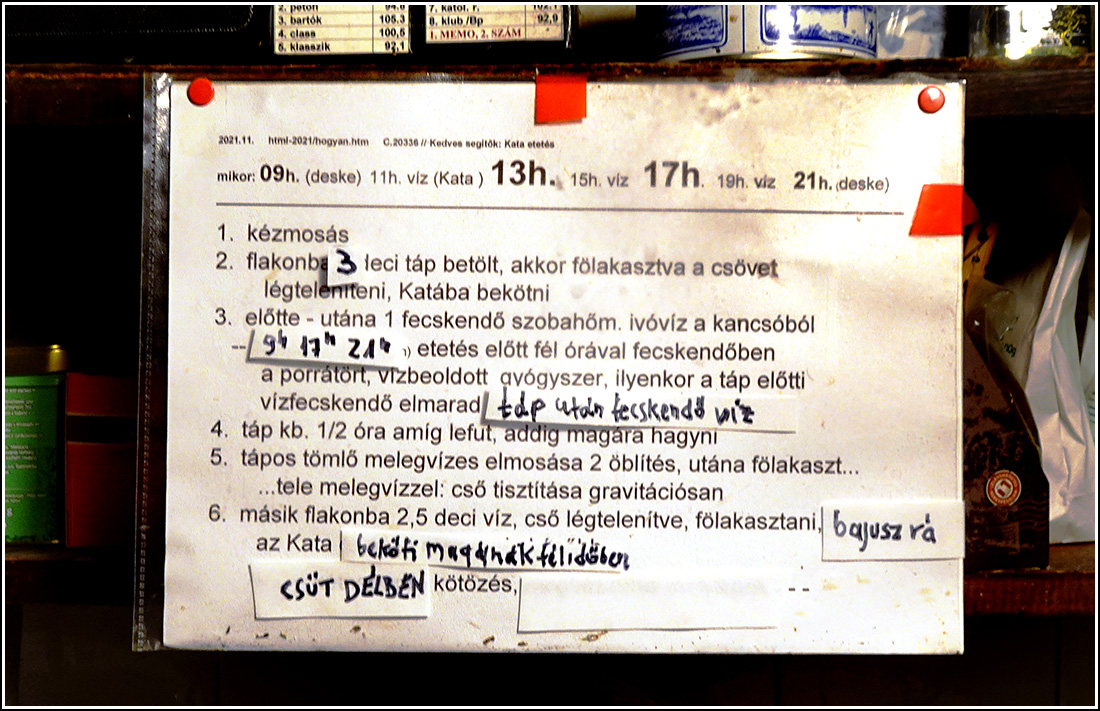 3. bartók 105,3
4. class 100,5
5. klasszik 92,1
8. klub /Bp 92,9
1. MEMO, 2. SZÁM
2021.11. html-2021/hogyan.htm C.20336 // Kedves segítők: Kata etetés
mikor: 09h. (deske) 11h. víz (Kata ) 13h. 15h. víz 17h. 19h. víz 21h. (deske)
1. kézmosás
2. flakonba 3 deci táp betölt, akkor fölakasztva a csövet
légteleníteni, Katába bekötni
3. előtte - utána 1 fecskendő szobahőm. ivóvíz a kancsóból
-- 9h 17h 21h etetés előtt fél órával fecskendőben
a porrátört, vízbeoldott gyógyszer, ilyenkor a táp előtti
vízfecskendő elmarad táp után fecskendő víz
4. táp kb. 1/2 óra amíg lefut, addig magára hagyni
5. tápos tömlő melegvizes elmosása 2 öblítés, utána fölakaszt...
...tele melegvízzel: cső tisztítása gravitációsan
6. másik flakonba 2,5 deci víz, cső légtelenítve, fölakasztani, bajusz rá
az Kata beköti magának félidőben
CSÜT DÉLBEN kötözés, --